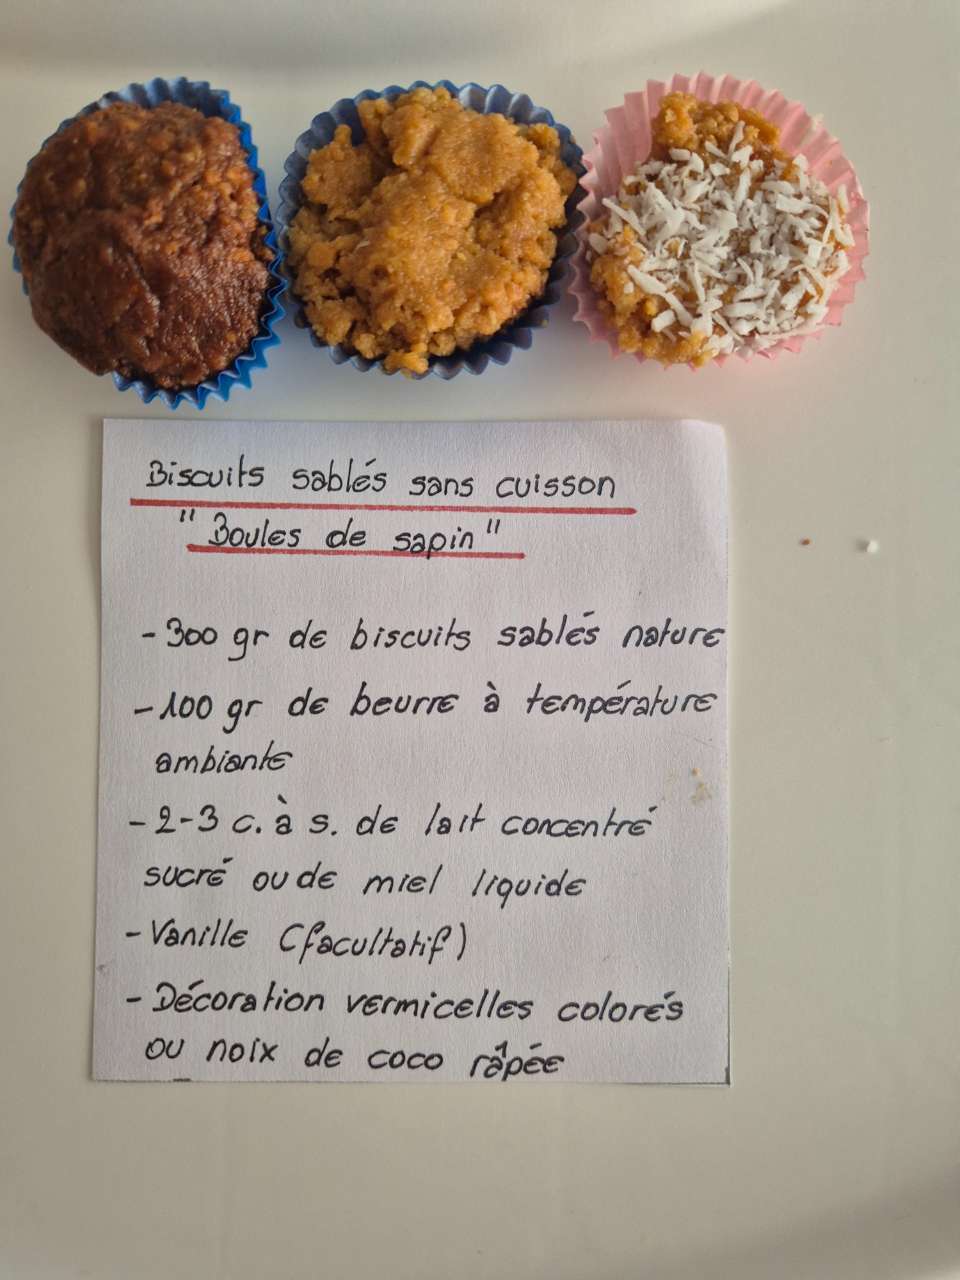 Biscuits sablés sans cuisson
"Boules de sapin"
- 300 gr de biscuits sablés nature
- 100 gr de beurre à température
ambiante
- 2-3 c. à s. de lait concentré
sucré ou de miel liquide
- Vanille (facultatif)
- Décoration vermicelles colorés
ou noix de coco râpée